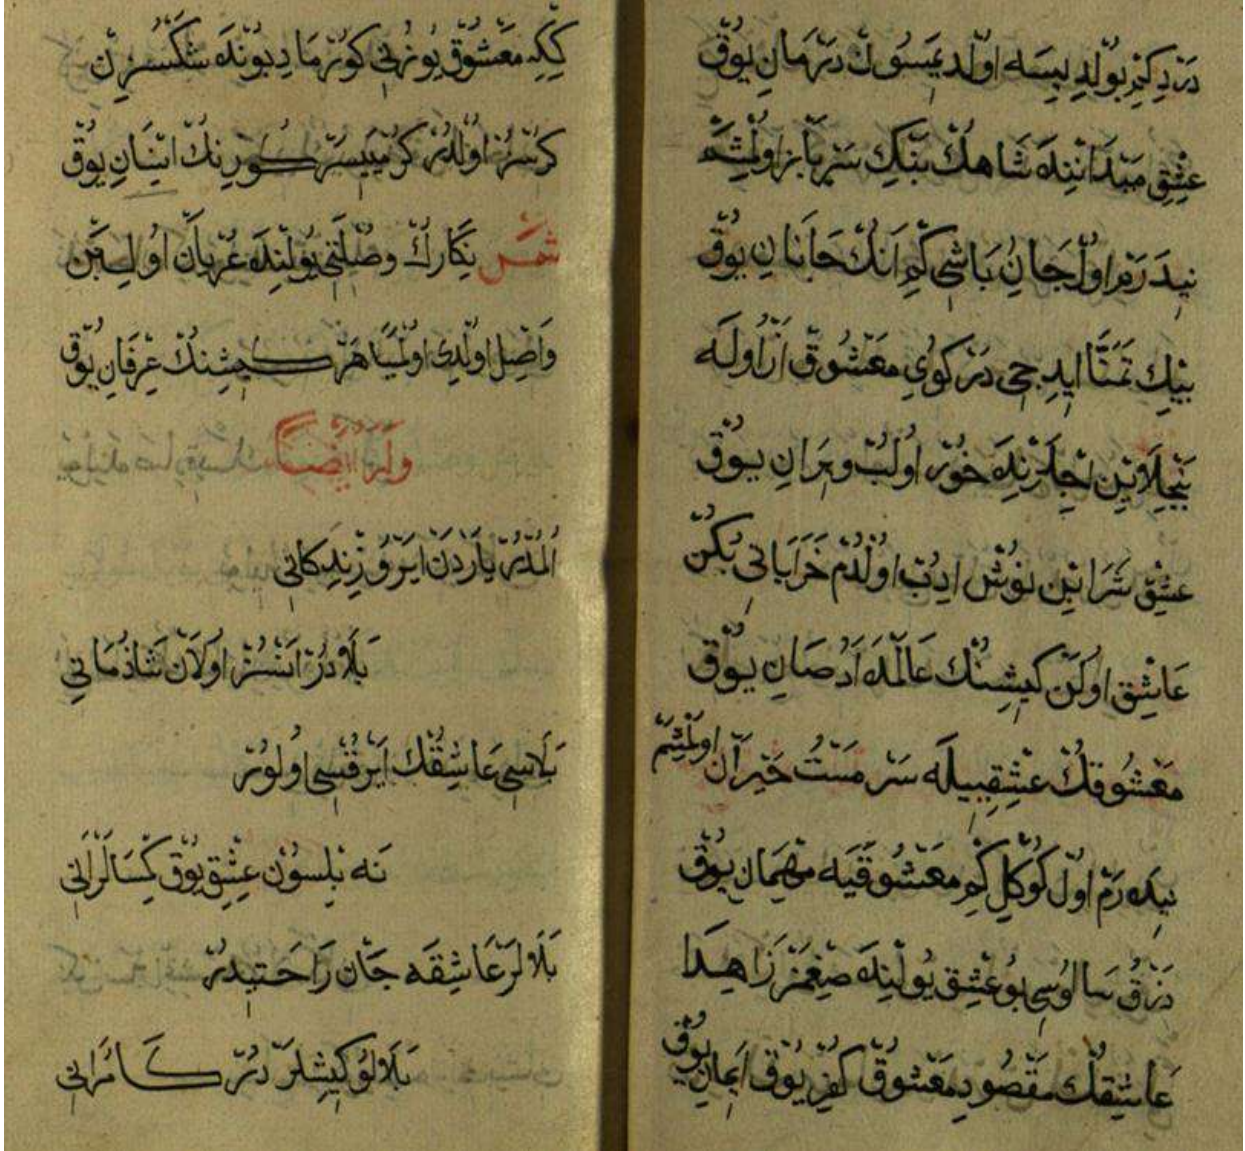 درد كم بولدیسه اولدیمسون درمان یوق
عشق میدانندە شاهك بنك سرباز اولمشم
نیدرم اول جان باشی كم انك جانان یوق
بیك تمنا ایدیجی در كوی معشوق اراوله
عشق شرابن نوش ادب اولدم خراباتی بكن
عاشق اولن كیشنك عالمده اد صان یوق
معشوقك عشقیله سر مست حیران اولمشم
نیده رم اول كوكل كم معشوقیه مهمان یوق
زرق سالوسی بو عشق یولنده صغمز زاهدا
عاشقك مقصود معشوق كفر یوق ایمان یوق
ككه معشوق یوزنی كورمادی بونده شكسزن
كرسز اولدر كرمیسر كورنك انیان یوق
شمس نكارك وصلتی یولنده عریان اولبن
واصل اولدی اولیا هر كیشنك عرفان یوق
وله ایضا
المدر یاردن ایرو زندكانی
بلادر انسز اولان شاذمانی
بلاسی عاشقك ایرقسی اولور
نه بلسون عشق یوق كمسالرانی
بلالر عاشقه جان راحتیدر
بلالو كیشلر در كامرانی